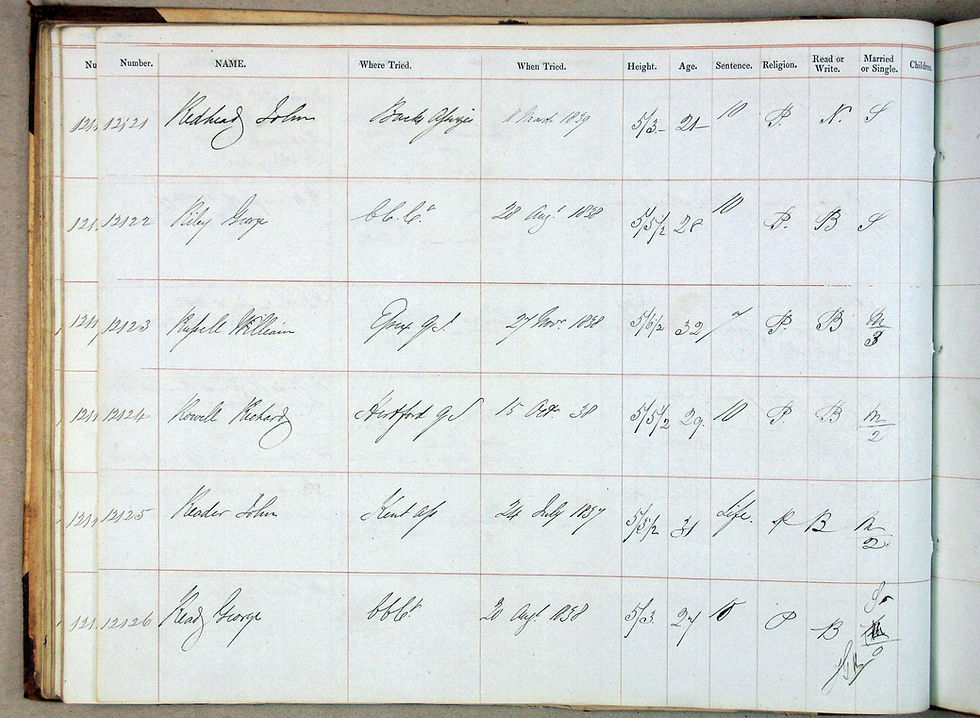 Number. NAME. Where Tried. When Tried. Height. Age. Sentence. Religion. Read or Write. Married or Single. Children.
12121 Redhead John Bucks Assizes 1839 5/3 21 10 P. N. S
12122 Riley George C.C.Ct 20 Augt 1838 5/5½ 28 10 P. B S
12123 Russell William Essex Q S. 27 Novr 1838 5/6½ 32 7 P. B M 3
12124 Rowell Richard Hertford Q S 15 Octr 38 5/5½ 29. 10 P. B M 2
12125 Reader John Kent Ass 24 July 1837 5/5½ 31 Life. P B M 2
12126 Ready George CCCt 20 Augt 1838 5/3 27 10 P B 0